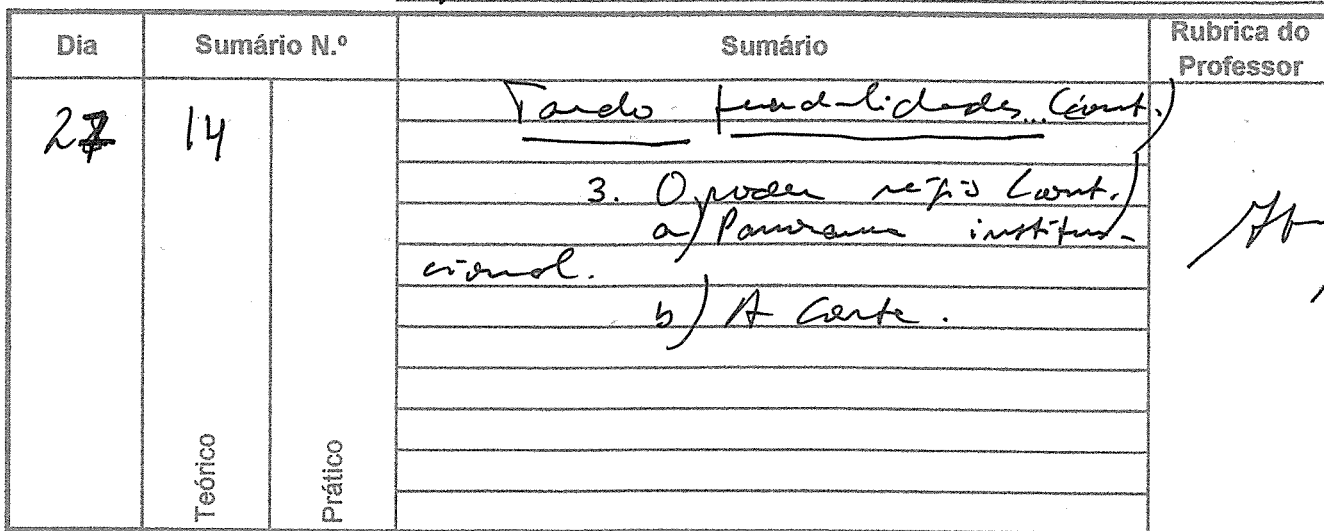 Dia
Sumário N.º
Sumário
Rubrica do
Professor
27
14
Tardo feudalidades... (cont.)
3. O poder régio (cont.)
a) Panorama institu-
cional.
b) A Corte.
Teórico
Prático